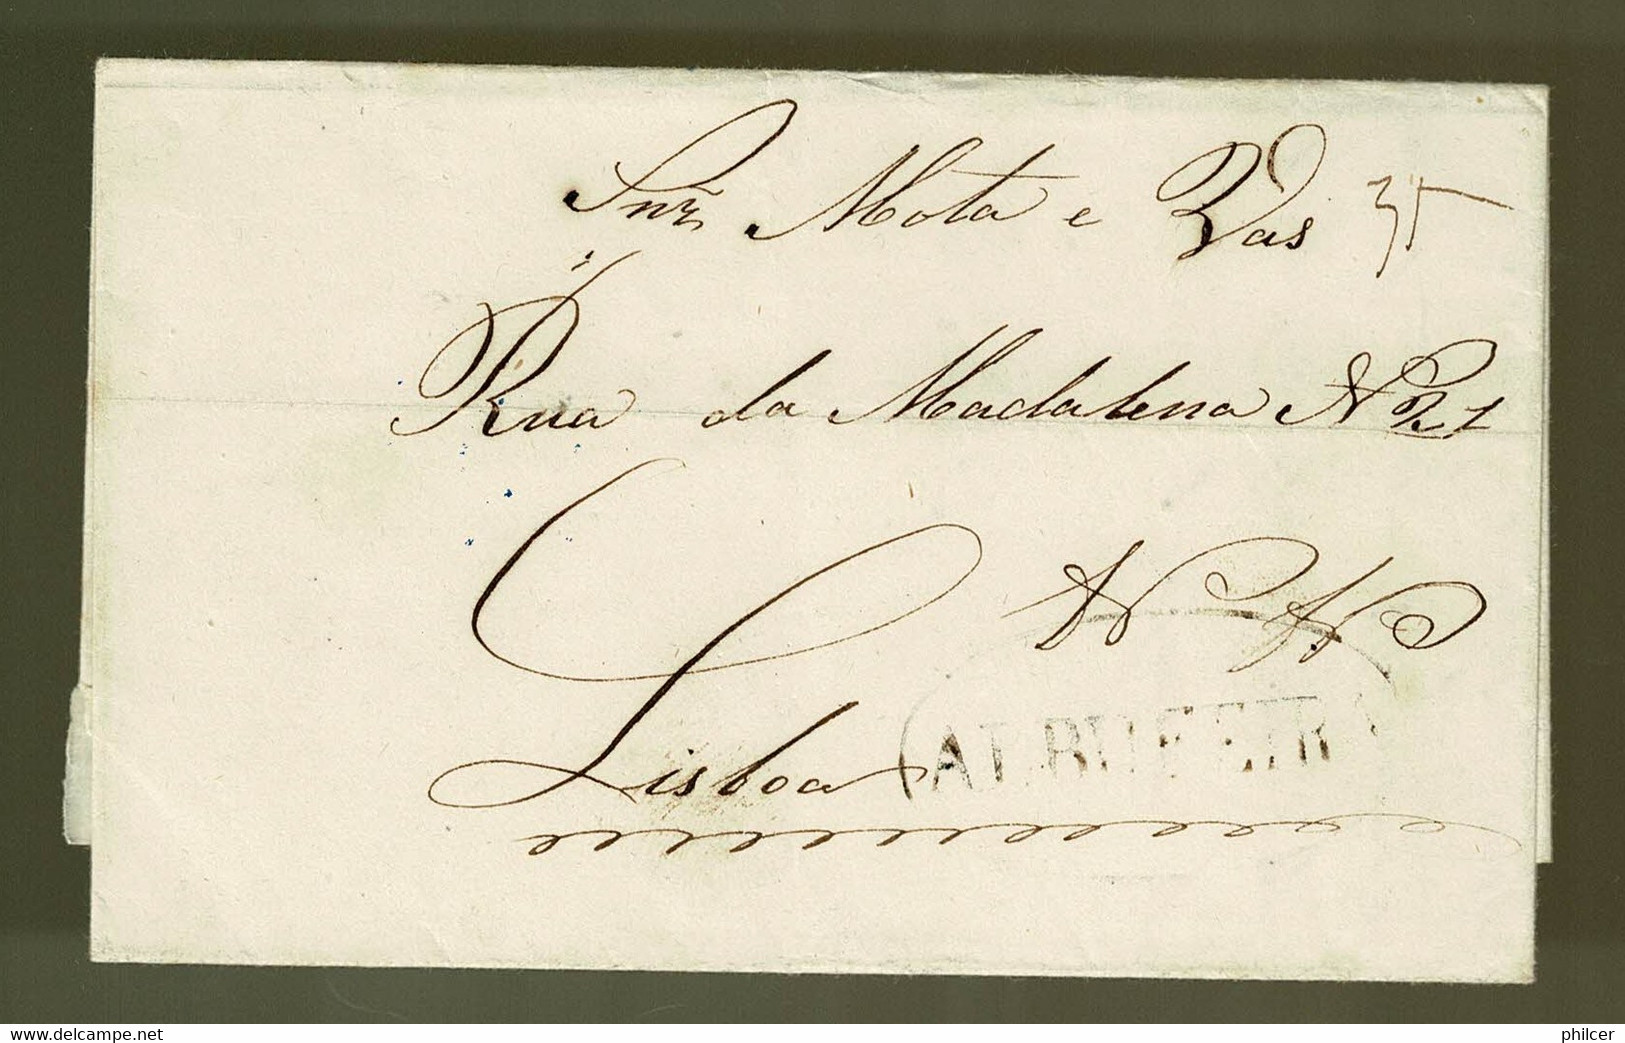 Snrs Mota e Vas 35
Rua da Madalena Nº 21
Lisboa
ALBUFEIRA
www.delcampe.net
philcer